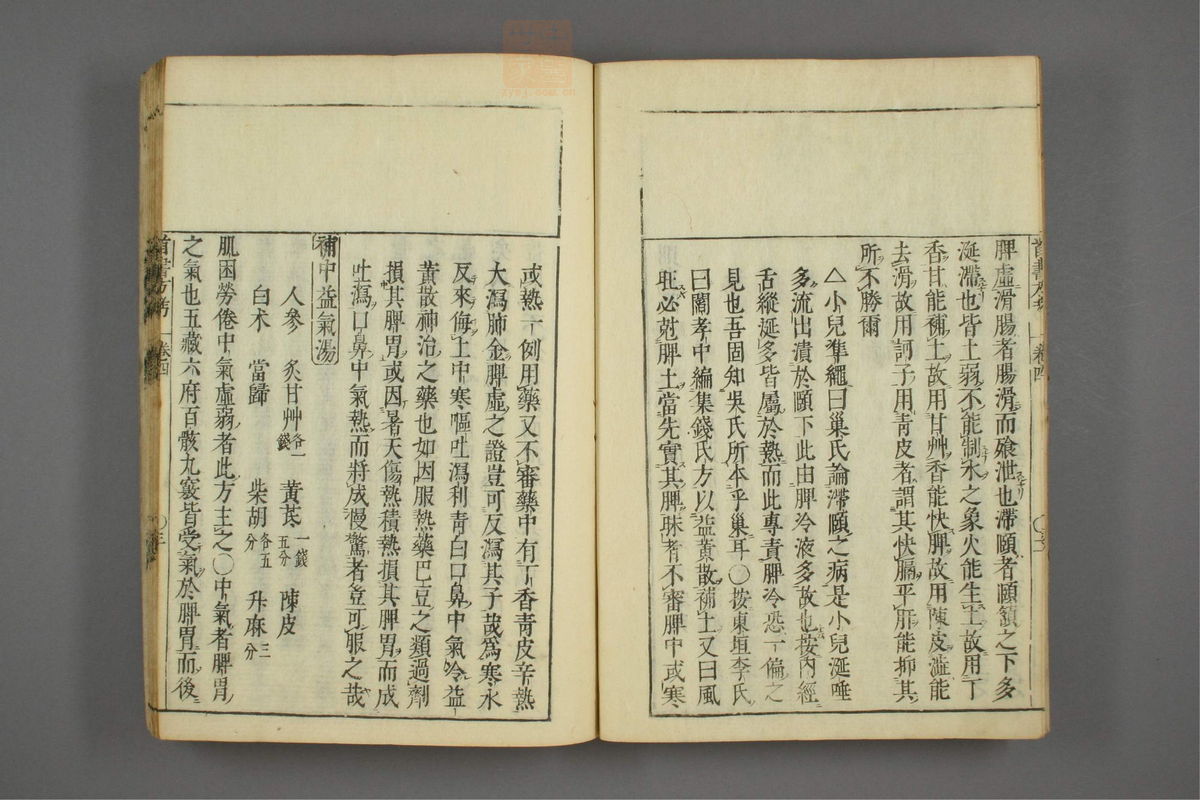 脾虛滑腸者腸滑而飧泄也滯頤者頤頷之下多
涎滯也皆土弱不能制水之象火能生土故用丁
香甘能補土故用甘艸香能快脾故用陳皮澁能
去滑故用訶子用靑皮者謂其快膈平肝能抑其
所不勝爾
△小兒準繩曰巢氏論滯頤之病是小兒涎唾
多流出漬於頤下此由脾冷液多故也按內經
舌縱涎多皆屬於熱而此專責脾冷恐一偏之
見也吾固知吳氏所本乎巢耳○按東垣李氏
曰閻孝中編集錢氏方以益黃散補土又曰風
旺必尅脾土當先實其脾昧者不審脾中或寒
或熱一例用藥又不審藥中有丁香靑皮辛熱
大瀉肺金脾虛之證豈可反瀉其子哉爲寒水
反來侮土中寒嘔吐瀉利靑白口鼻中氣冷益
黃散神治之藥也如因服熱藥巴豆之類過劑
損其脾胃或因暑天傷熱積熱損其脾胃而成
吐瀉口鼻中氣熱而將成慢驚者豈可服之哉
補中益氣湯
人參 炙甘艸各一錢 黃芪一錢五分 陳皮
白朮 當歸 柴胡各五分 升麻三分
肌困勞倦中氣虛弱者此方主之○中氣者脾胃
之氣也五藏六府百骸九竅皆受氣於脾胃而後
首書方考 卷四